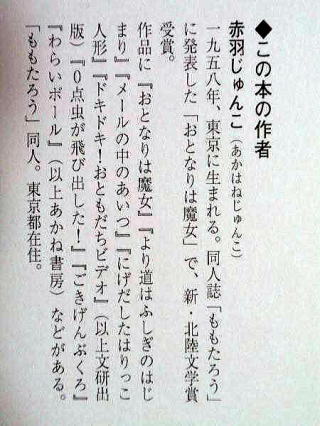 ◆この本の作者
赤羽じゅんこ(あかはねじゅんこ)
一九五八年、東京に生まれる。同人誌「ももたろう」
に発表した「おとなりは魔女」で、新・北陸文学賞
受賞。
作品に『おとなりは魔女』『より道はふしぎのはじ
まり』『メールの中のあいつ』『にげだしたはりっこ
人形』『ドキドキ!おともだちビデオ』(以上文研出
版)『0点虫が飛び出した!』『ごきげんぶくろ』
『わらいボール』(以上あかね書房)などがある。
「ももたろう」同人。東京都在住。